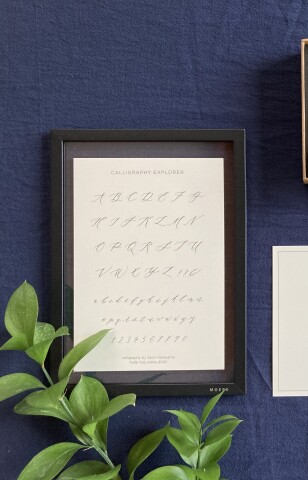 CALLIGRAPHY EXPLORER
A B C D E F G
H I J K L M N
O P Q R S T U
V W X Y Z
a b c d e f g h i j k l m n
o p q r s t u v w x y z
1 2 3 4 5 6 7 8 9 0